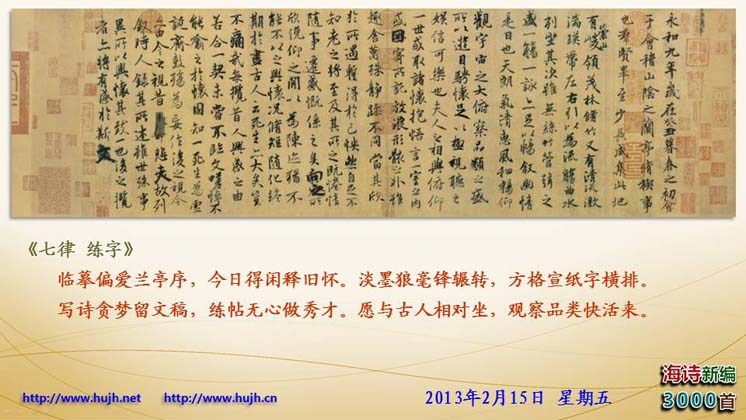 永和九年歲在癸丑暮春之初會
于會稽山陰之蘭亭脩稧事
也羣賢畢至少長咸集此地
有崇山峻領茂林脩竹又有清流激
湍暎帶左右引以為流觴曲水
列坐其次雖無絲竹管弦之
盛一觴一詠亦足以暢叙幽情
是日也天朗氣清惠風和暢仰
觀宇宙之大俯察品類之盛
所以遊目騁懷足以極視聽之
娛信可樂也夫人之相與俯仰
一世或取諸懷抱悟言一室之內
或因寄所託放浪形骸之外雖
趣舍萬殊靜躁不同當其欣
於所遇蹔得於己怏然自足不
知老之將至及其所之既惓情
隨事遷感慨係之矣向之所
欣俛仰之閒以為陳迹猶不
能不以之興懷況脩短隨化終
期於盡古人云死生亦大矣豈
不痛哉每攬昔人興感之由
若合一契未嘗不臨文嗟悼不
能喻之於懷固知一死生為虛
誕齊彭殤為妄作後之視今
亦由今之視昔悲夫故列
叙時人錄其所述雖世殊事
異所以興懷其致一也後之攬
者亦將有感於斯文
《七律 练字》
临摹偏爱兰亭序，今日得闲释旧怀。淡墨狼毫锋辗转，方格宣纸字横排。
写诗贪梦留文稿，练帖无心做秀才。愿与古人相对坐，观察品类快活来。
http://www.hujh.net http://www.hujh.cn
2013年2月15日 星期五
海诗新编
3000首